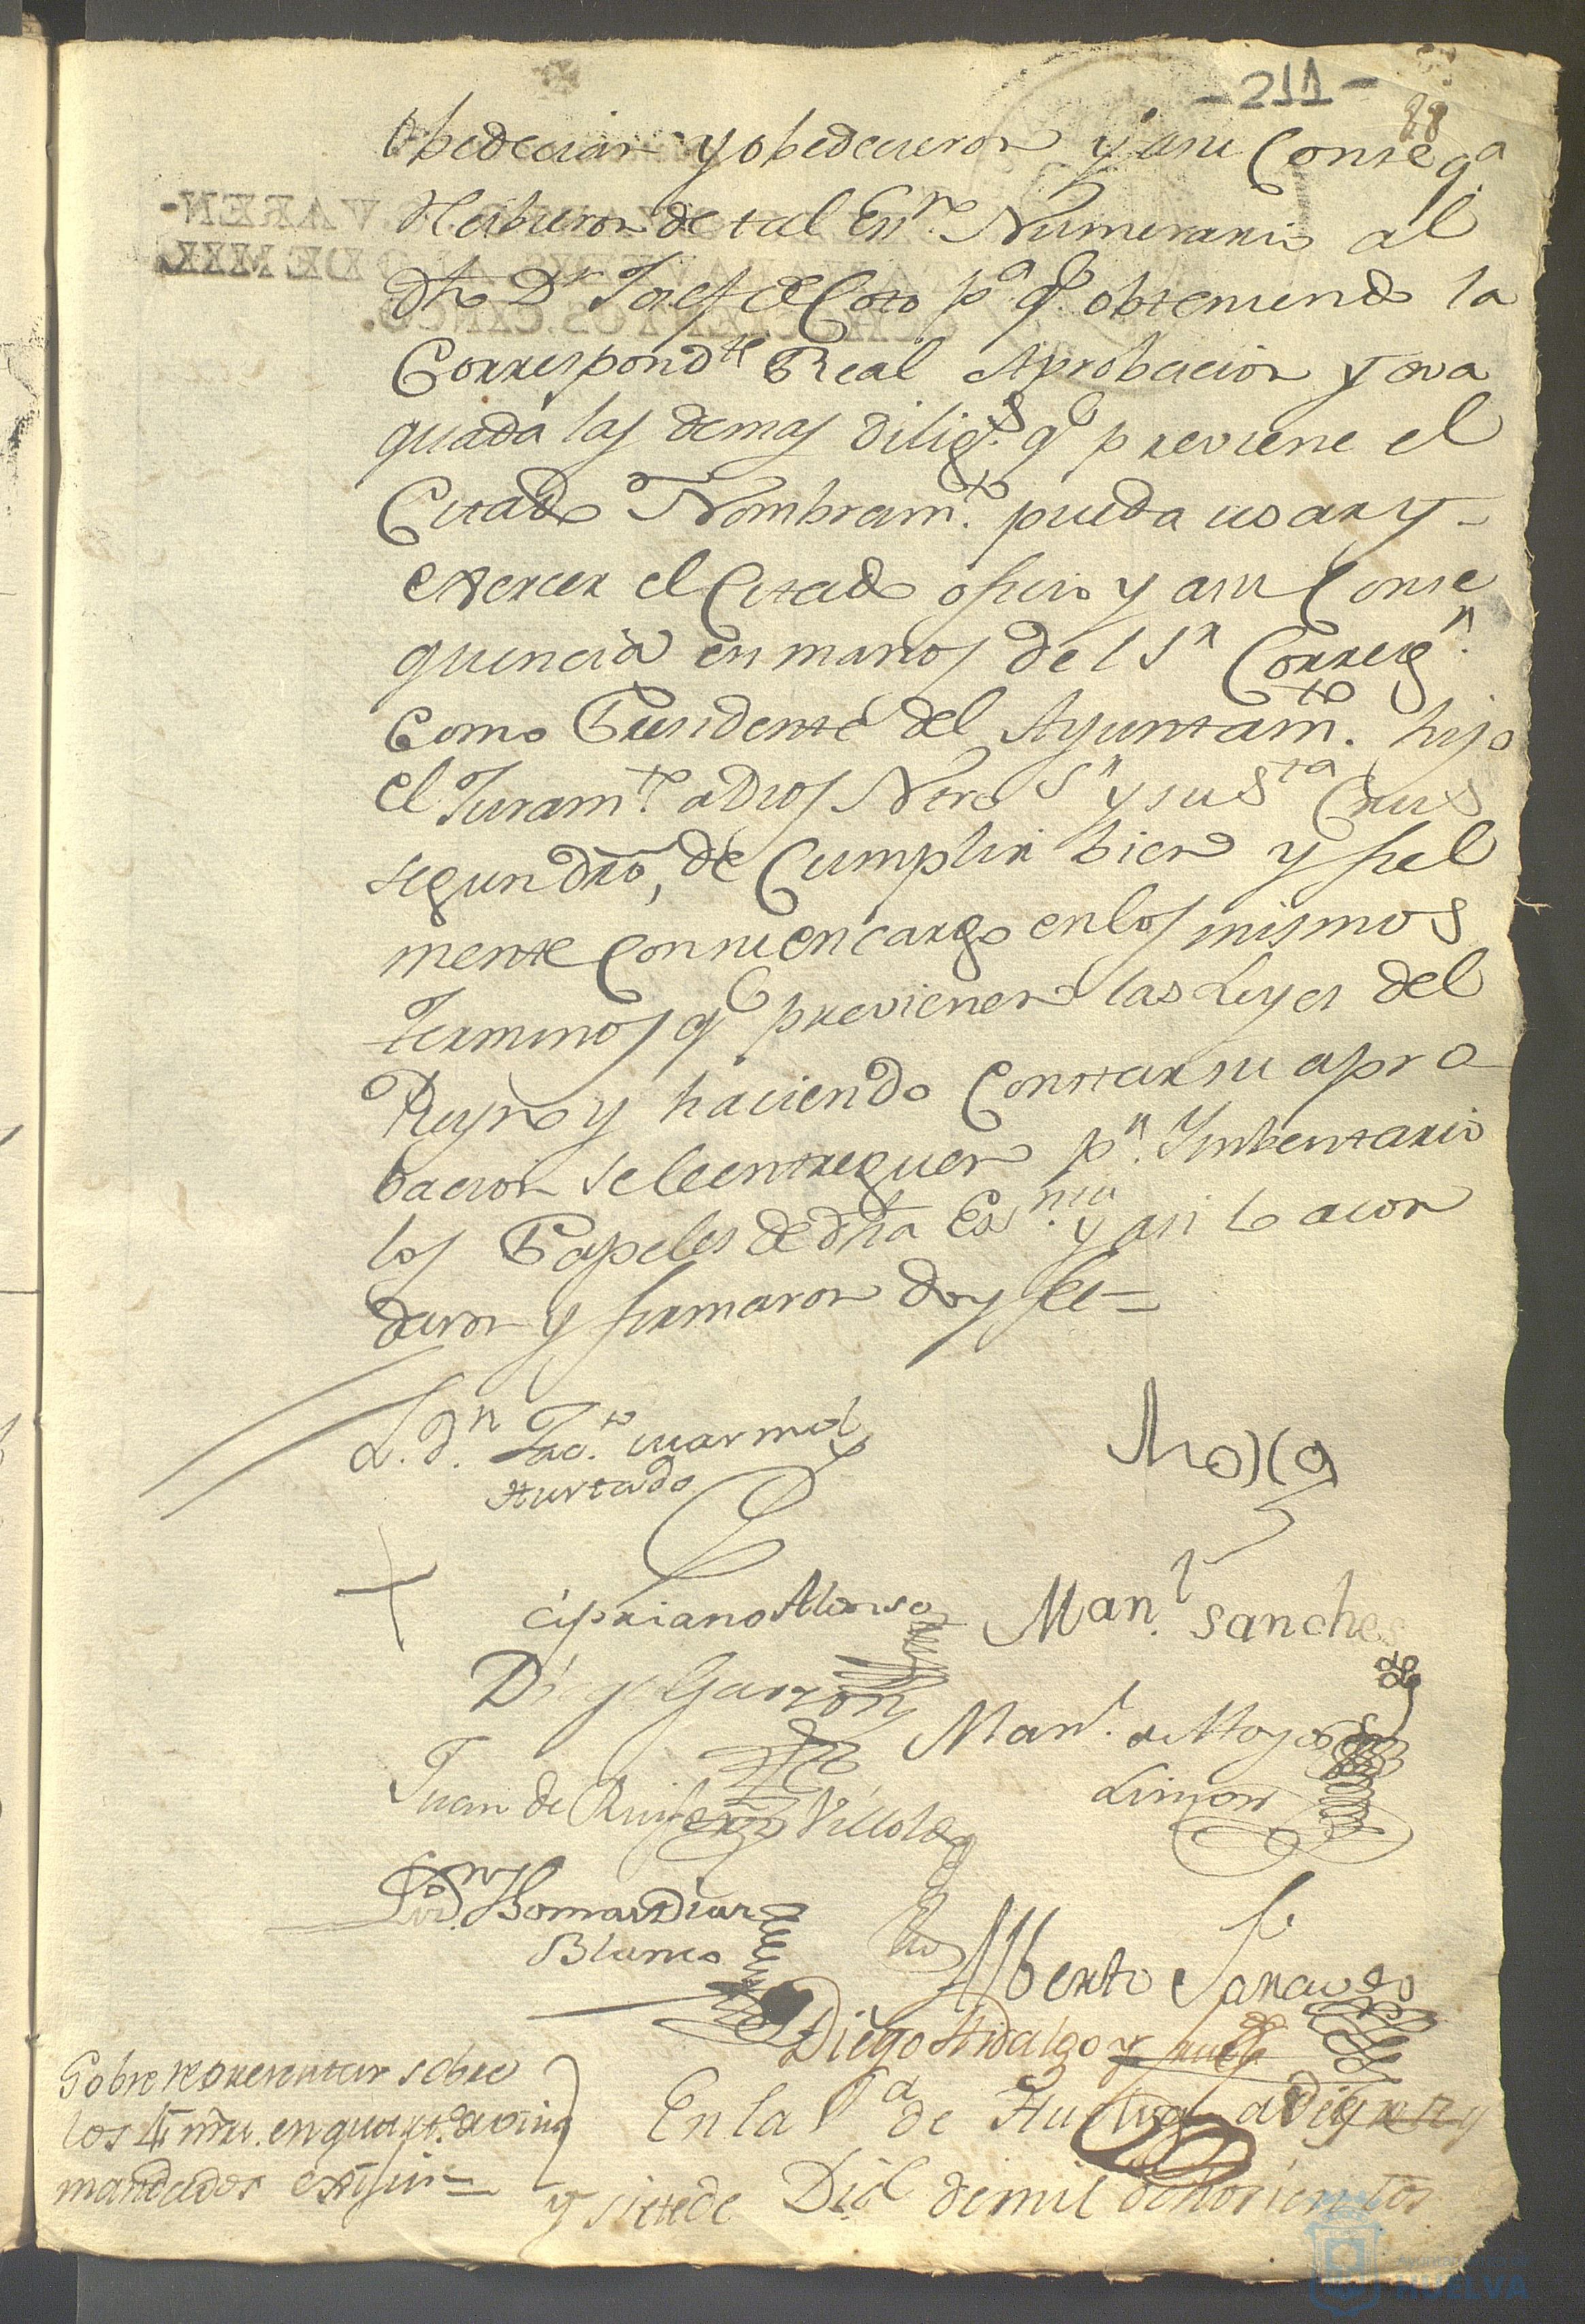 -211-
88
Obedecian y obedecieron y asu Conseqª
Recibieron de tal Essno Numerario al
dho Dn Josef de Coto pª qe obteniendo la
Correspondte Real Aprobacion y eva
quada las demas diligs qe previene el
Citado Nombramto pueda usar y
exercer el Citado oficio y asu Conse
quencia en manos del Sr Corregr
Como Presidente del Ayuntamto hizo
el Juramto a Dios Ntro Sr y su Sta Crus
segun dro, de Cumplir bien y fiel
mente Con su encargo en los mismos
terminos qe previenen las Leyes del
Reyno y haciendo Constar su apro
bacion se le entreguen pr Ymbentario
los Papeles de dha Essnia y asi lo acor
daron y firmaron doy fe=
L. Dn Jac.to Marmol
Hurtado
Moxa
Cipriano Alonso
Manl Sanches
Diego Garzon
Manl de Moya
Limon
Juan de Villola
Ldo Dn Thomas Diaz
Blanco
Alberto Faraudo
Diego Hidalgo y
Sobre representar sobre
los 4 mrs. en quart. de vino
mandados exijir=
En la Vª de Huelva a Diez
y siete de Dic de mil ochocientos
HUELVA